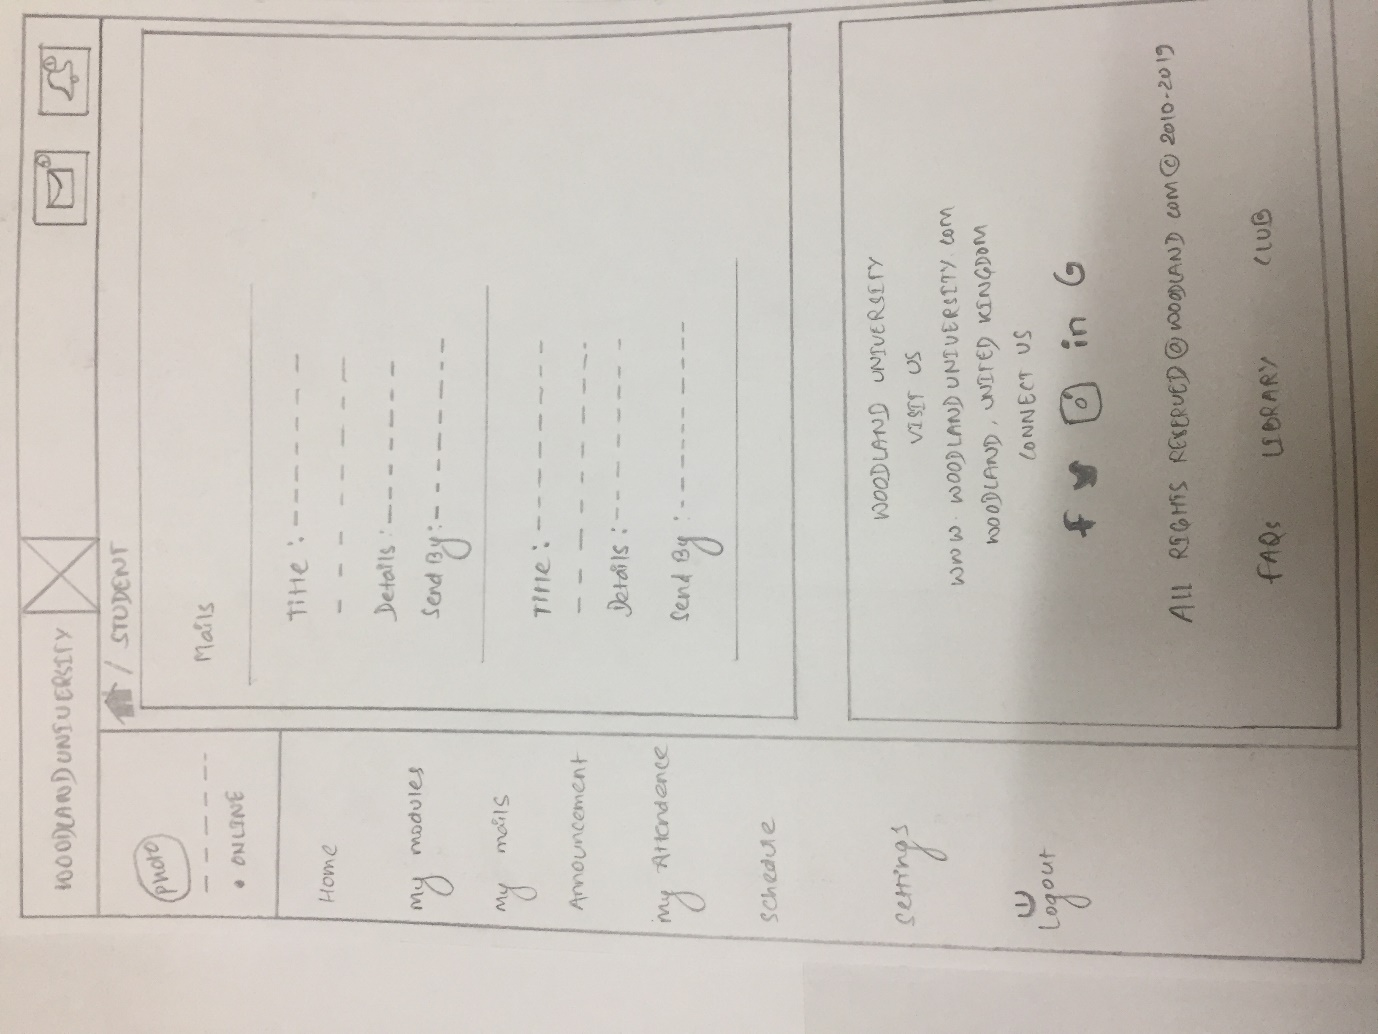 WOODLAND UNIVERSITY
/ STUDENT
photo
• ONLINE
Home
My modules
My mails
Announcement
My Attendence
Schedule
Settings
Logout
Mails
Title :- - - - - - -
Details :- - - - - - -
Send By :- - - - - - - -
Title :- - - - - - - -
Details :- - - - - - -
Send By :- - - - - - - - -
WOODLAND UNIVERSITY
VISIT US
www. WOODLANDUNIVERSITY.com
WOODLAND, UNITED KINGDOM
CONNECT US
f in G
ALL RIGHTS RESERVED @ WOODLAND com © 2010-2019
FAQs LIBRARY CLUB